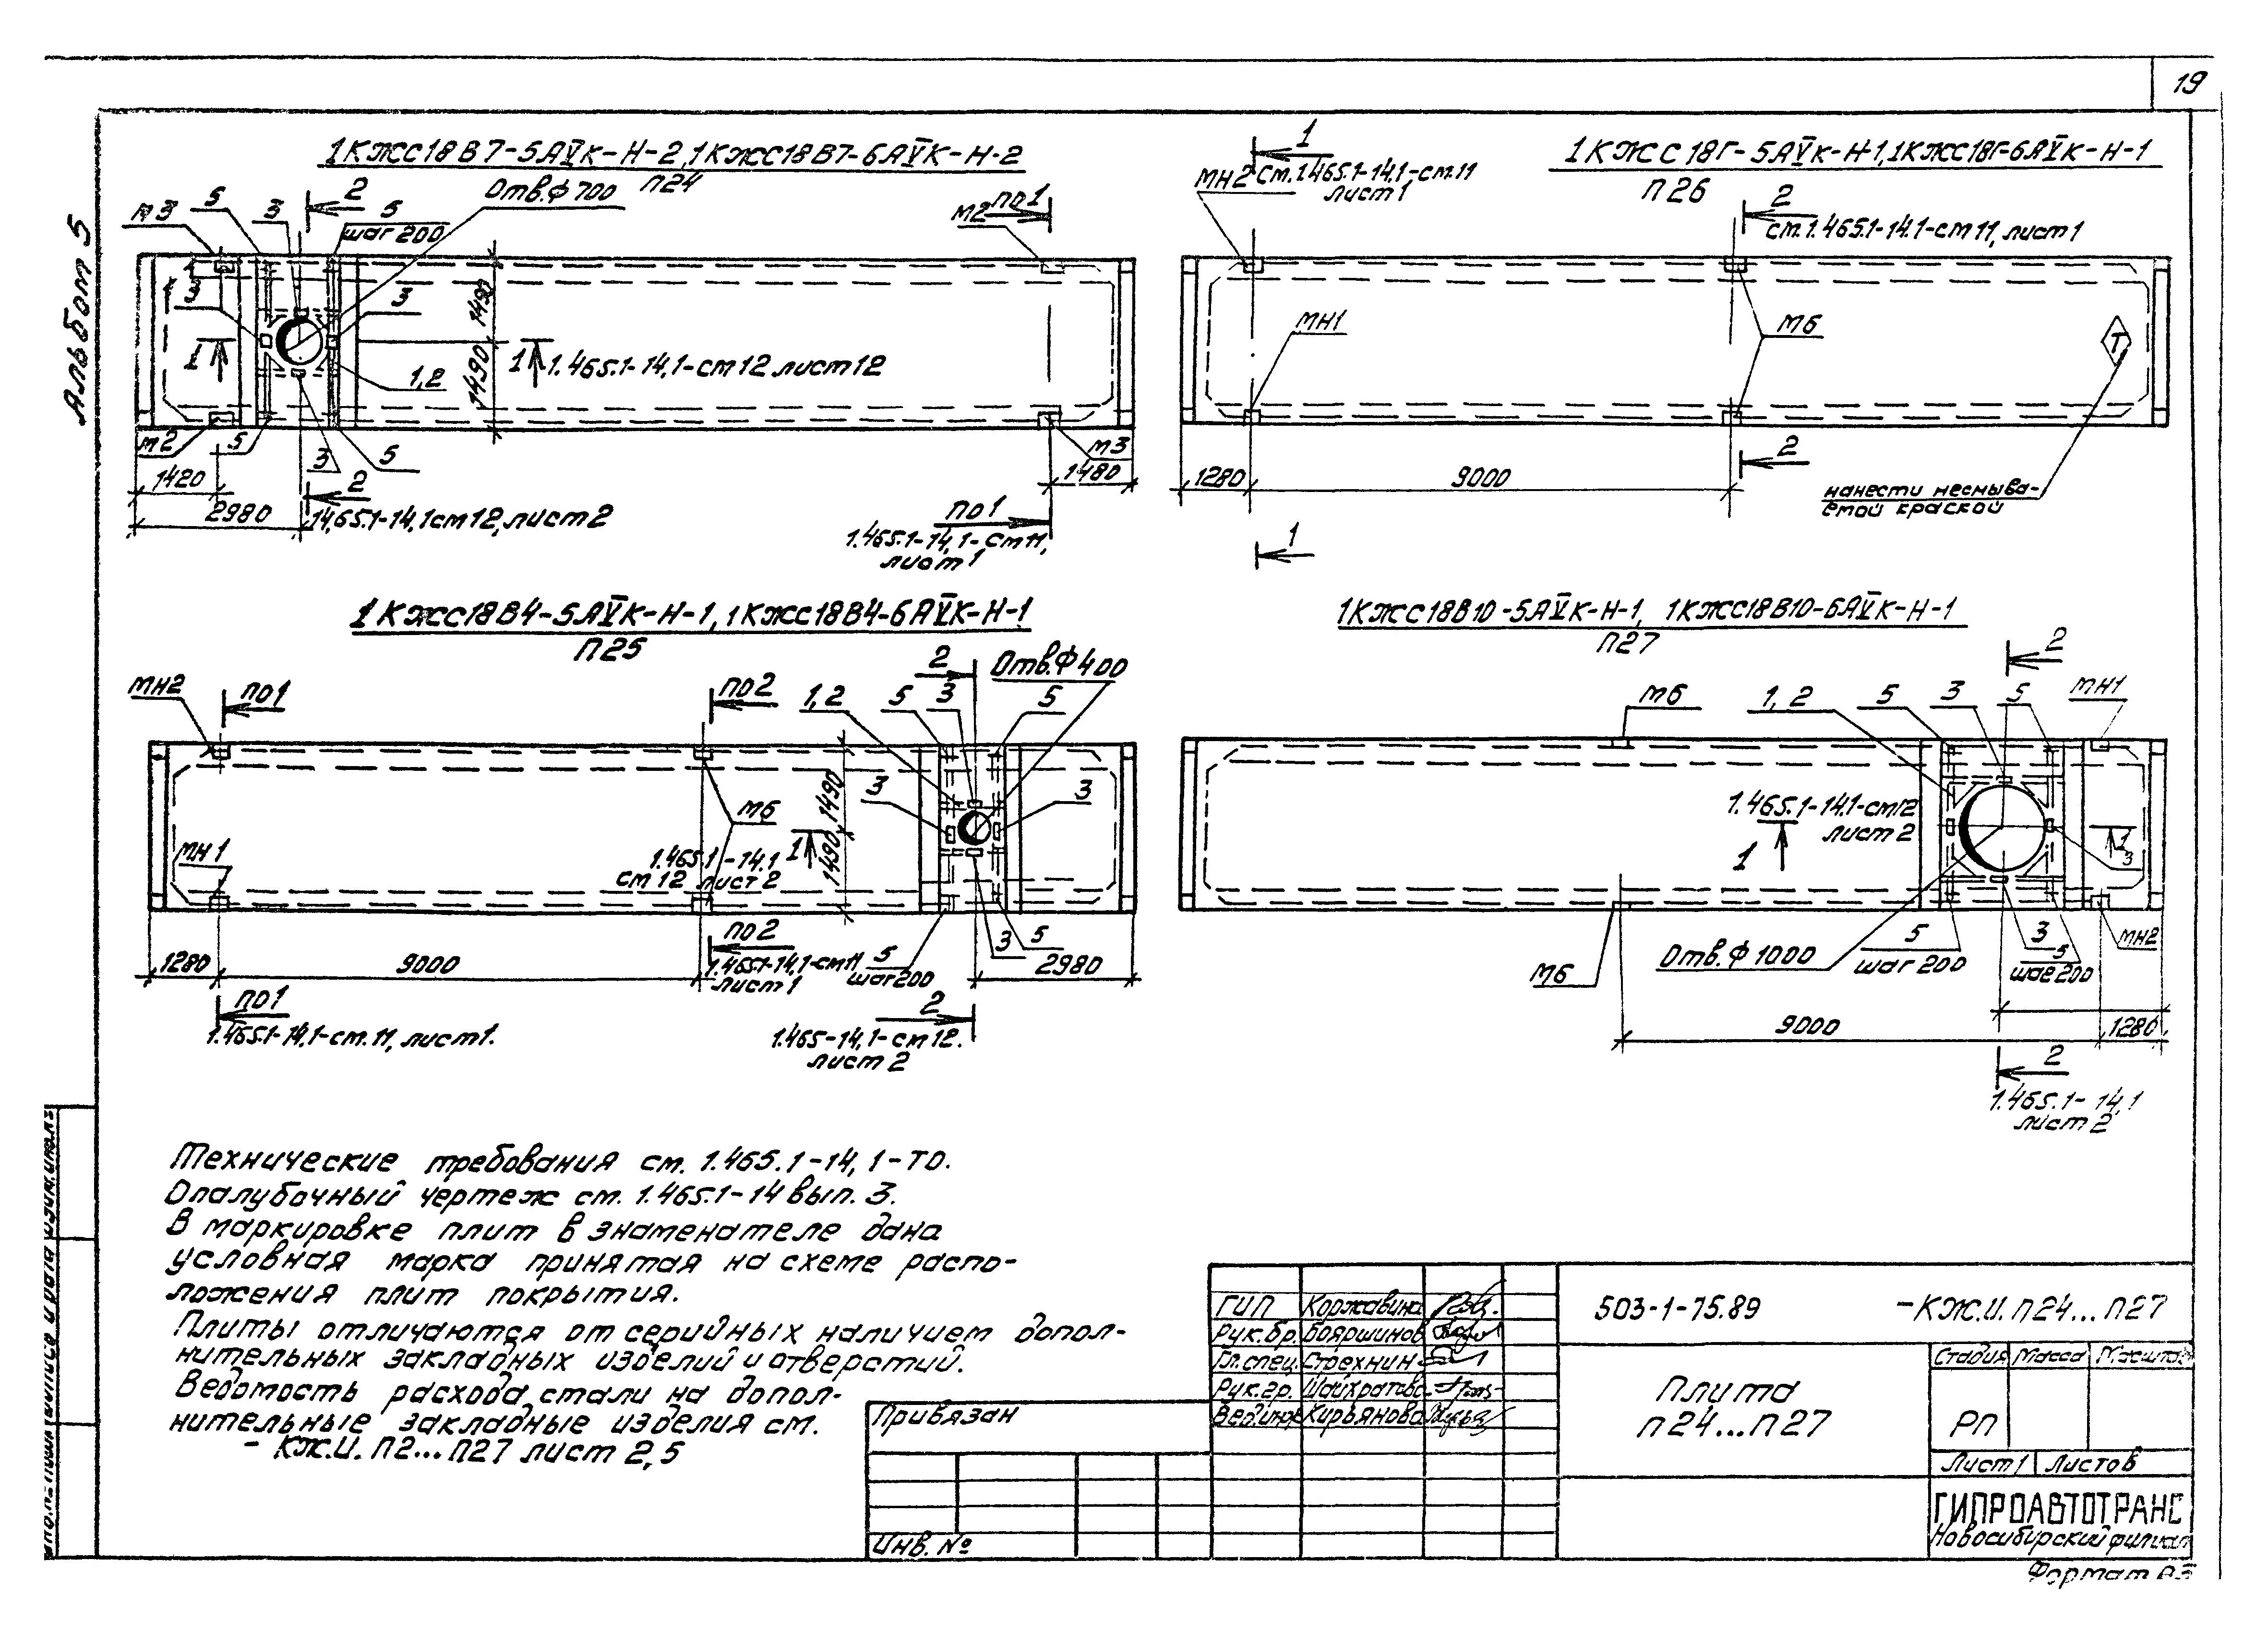 19
Альбом 5
1КЖС18В7-5АV̅к-Н-2, 1КЖС18В7-6АV̅К-Н-2
П24
М3
5
3
2
5
шаг 200
Отв.Ф 700
М2
по1
3
3
1
1
1.465.1-14,1-ст12 лист12
1,2
1490
1490
М2
5
3
5
М3
1420
2
1480
2980
14,65.1-14,1ст12, лист2
по1
1.465.1-14,1-ст11,
лист1
1КЖС18Г-5АV̅к-Н-1, 1КЖС18Г-6АV̅К-Н-1
П26
1
МН2
см.1.465.1-14,1-ст.11
лист1
2
см.1.465.1-14.1-ст11, лист1
МН1
М6
Т
1280
9000
2
нанести несмыва-
емой краской
1
1КЖС18В4-5АV̅К-Н-1, 1КЖС18В4-6АV̅К-Н-1
П25
МН2
по1
по2
1,2
5
2
3
Отв.Ф 400
5
МН1
М6
1490
1490
3
3
1.465.1-14.1
ст12 лист2
1
по2
1280
9000
1.465.1-14,1-ст11
лист1
5
шаг200
3
5
2980
по1
1.465.1-14,1-ст.11, лист1.
2
1.465-14,1-ст12.
лист2
1КЖС18В10-5АV̅К-Н-1, 1КЖС18В10-6АV̅К-Н-1
П27
2
М6
1,2
5
3
5
МН1
1.465.1-14.1-ст12
лист2
1
3
М6
Отв.Ф 1000
5
шаг 200
3
5
шаг 200
МН2
9000
1280
2
1.465.1-14,1
лист2
Технические требования см. 1.465.1-14, 1-ТО.
Опалубочный чертеж см. 1.465.1-14 вып. 3.
В маркировке плит в знаменателе дана
условная марка принятая на схеме распо-
ложения плит покрытия.
Плиты отличаются от серийных наличием допол-
нительных закладных изделий и отверстий.
Ведомость расхода стали на допол-
нительные закладные изделия см.
- КЖ.И. П2...П27 лист 2,5
Привязан
Инв. №
ГИП Коржавина
Рук.бр. Бояршинов
Гл.спец. Стрехнин
Рук.гр. Шайхратова
Вед.инж. Кирьянова
503-1-75.89 -КЖ.И. П24...П27
Плита
П24...П27
Стадия Масса Масштаб
РП
Лист1 Листов
ГИПРОАВТОТРАНС
Новосибирский филиал
Формат А3